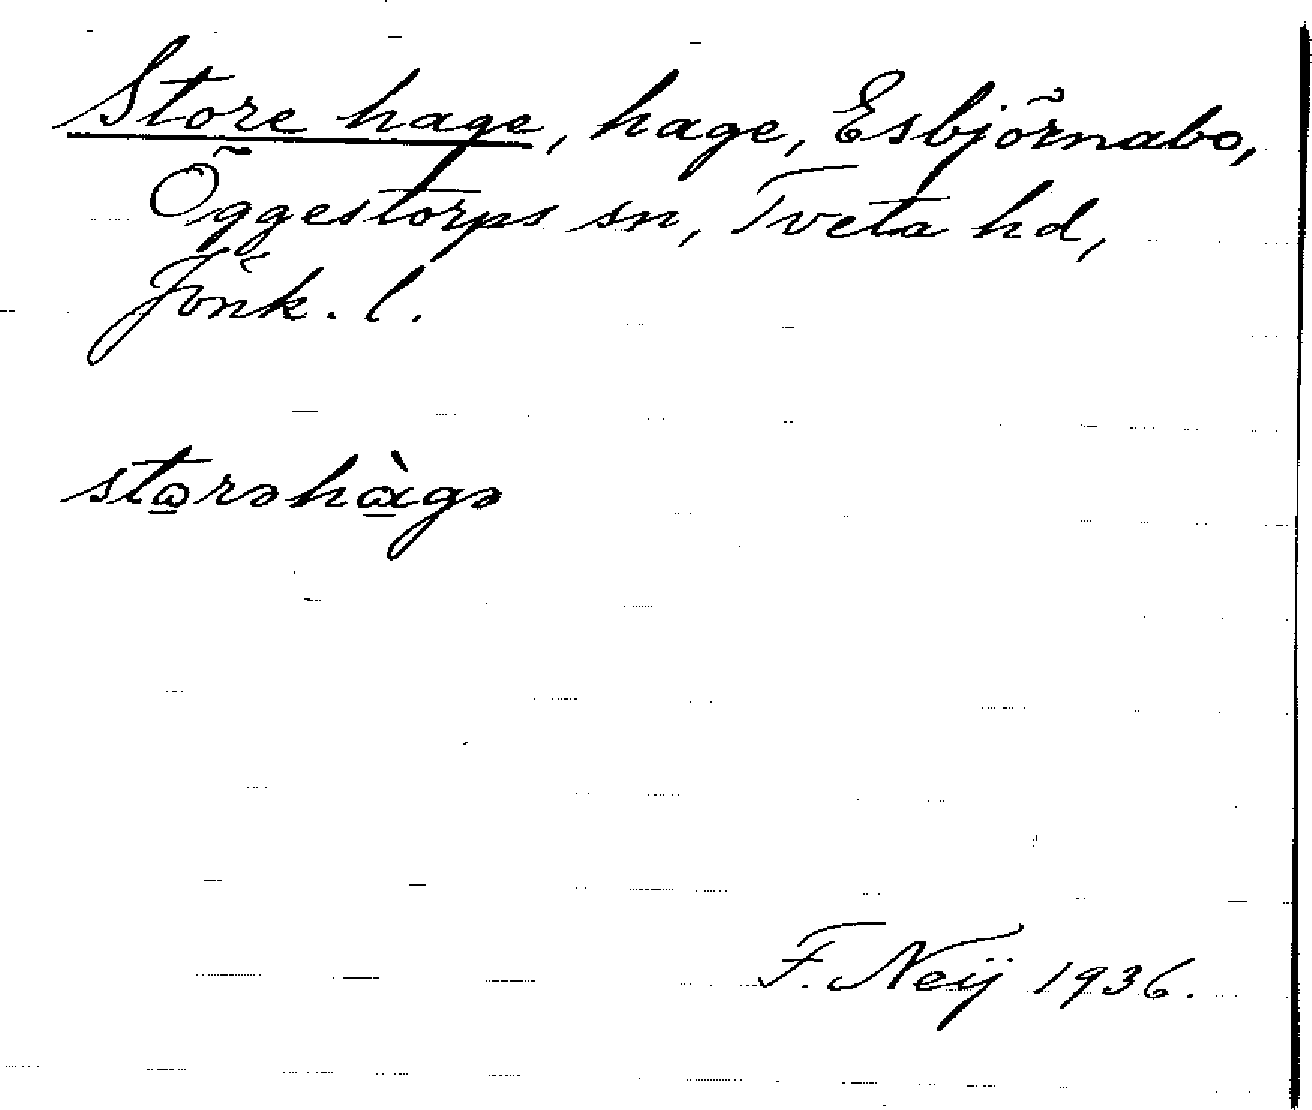 Store hage, hage, Esbjörnabo,
Öggestorps sn, Tveta hd,
Jönk. l.
stω̲rəhὰ̲gə
F. Neij 1936.